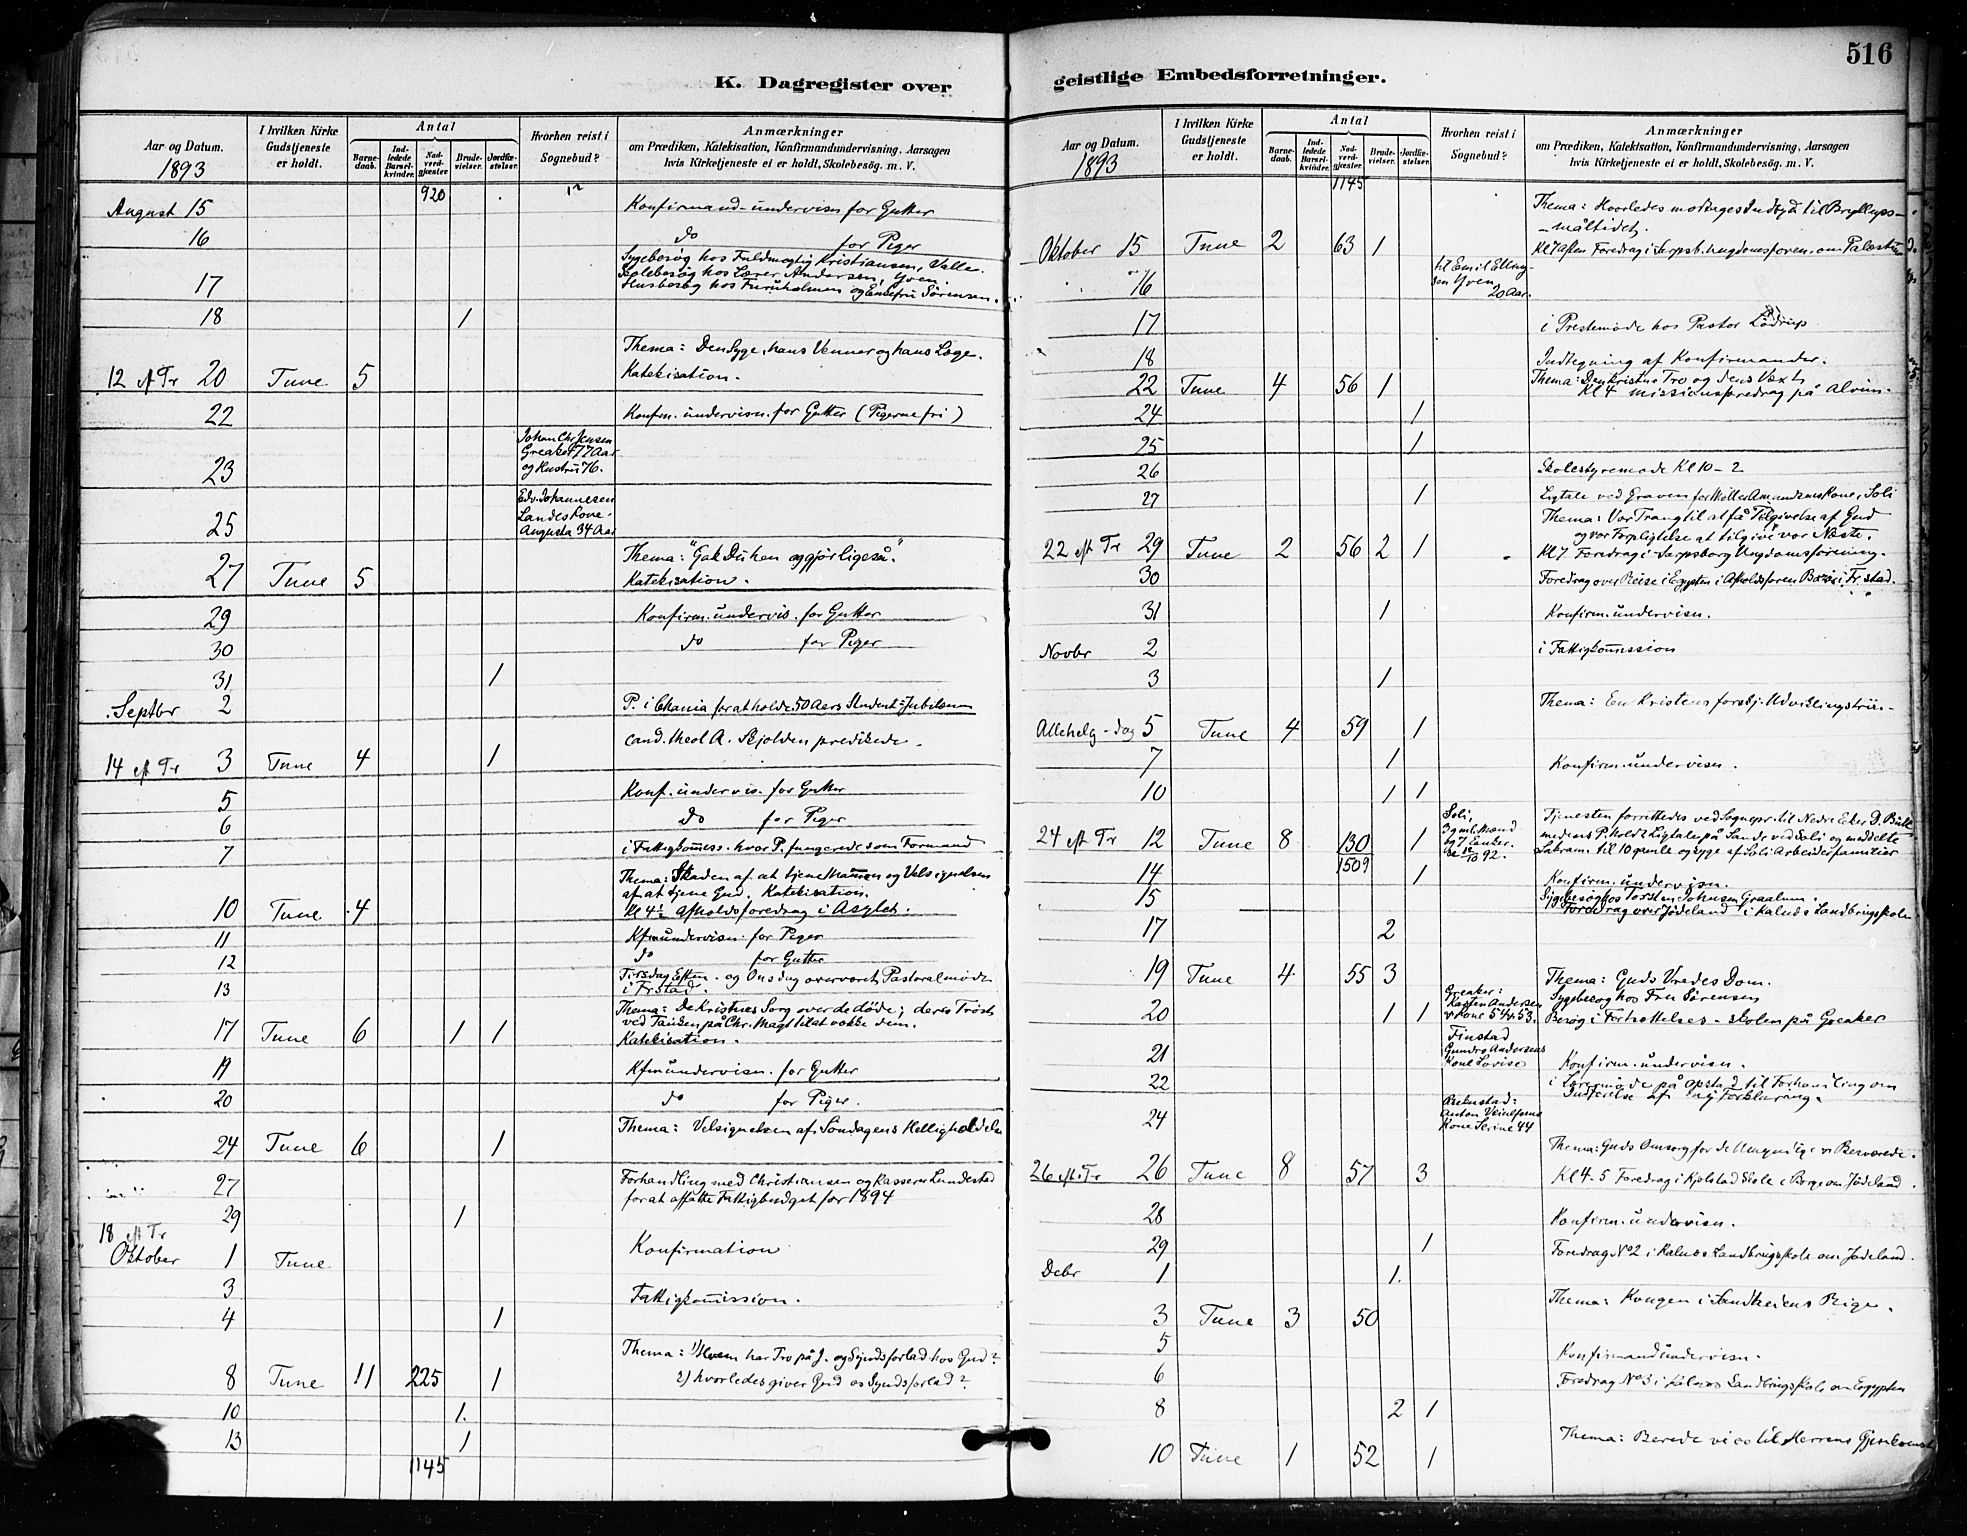 516
K. Dagregister over
Aar og Datum.
1893
I hvilken Kirke Gudstjeneste er holdt.
Antal
Barne-daab.
Ind-ledede Barsel-kvinder.
Nad-verd-gjæster.
Brude-vielser.
Jordfæ-stelser.
Hvorhen reist i Sognebud?
Anmærkninger
om Prædiken, Katekisation, Konfirmandundervisning, Aarsagen
hvis Kirketjeneste ei er holdt, Skolebesøg. m. V.
920
August 15 Konfirmand-undervisn for Gutter
16 do for Piger
Sygebesøg hos Fuldmægtig Kristiansen, Valle.
Skolebesøg hos Lærer Andersen, Yven
17 Husbesøg hos Furuholmen og Enkefru Sørensen.
18 1
Thema: Den Syge, hans Venner og hans Læge.
12 eft Tr 20 Tune 5 Katekisation.
22 Konfm. undervisn. for Gutter (Pigerne fri)
Johan Chr Jensen
Greaker 77 Aar
23 og Hustru 76.
Edv. Johannesen
Landes Kone
25 Augusta 34 Aar
Thema: "Gak Du hen og gjør ligeså."
27 Tune 5 Katekisation.
29 Konfirm. undervis. for Gutter
30 do for Piger
31 1
Septbr 2 P. i Chania for at holde 50 Aars Student-Jubilæum
cand. theol A. Skjolden prædikede.
14 eft Tr 3 Tune 4 1
5 Konf. undervis. for Gutter
6 do for Piger
7 i Fattigkommiss. hvor P. fungerede som Formand
Thema: Skaden af at tjene Mammon og Velsignelsen
af at tjene Gud. Katekisation.
10 Tune 4 Kl 4½ Afholdsforedrag i Asylet.
11 Kfmundervisn. for Piger
12 do for Gutter
Tirsdag Eften. og Onsdag overværet Pastoralmøde
13 i Fr.stad.
Thema: De Kristnes Sorg over de døde; deres Trøst
ved Tanken på Chr. Magt til at vække dem.
17 Tune 6 1 1 Katekisation.
19 Kfmundervisn. for Gutter
20 do for Piger.
Thema: Velsignelsen af Søndagens Helligholdelse
24 Tune 6 1
27 Forhandling med Christiansen og Kasserer Lundestad
for at affatte Fattigbudget for 1894
29 1
18 eft Tr
Oktober 1 Tune Konfirmation
3 Fattigkommission.
4 1
Thema: 1) Hvem har Tro på J. og Syndsforlad. hos Gud?
8 Tune 11 225 1 2) hvorledes giver Gud os Syndsforlad?
10 1.
13 1
1145
geistlige Embedsforretninger.
Aar og Datum.
1893
I hvilken Kirke Gudstjeneste er holdt.
Antal
Barne-daab.
Ind-ledede Barsel-kvinder.
Nad-verd-gjæster.
Brude-vielser.
Jordfæ-stelser.
Hvorhen reist i Sognebud?
Anmærkninger
om Prædiken, Katekisation, Konfirmandundervisning, Aarsagen
hvis Kirketjeneste ei er holdt, Skolebesøg. m. V.
1145
Thema: Hvorledes modtages Indbydn til Bryllups-
-måltidet.
Oktober 15 Tune 2 63 1 Kl 7 Aften Foredrag i Sarpsb. Ungdomsforen. om Palestina
16 til Emil Elling-
sen Yven
20 Aar.
17 i Prestemøde hos Pastor Lødrup
18 Indtegning af Konfirmander.
22 Tune 4 56 1 Thema: Den kristne Tro og dens Vext
Kl 4 missionsforedrag på Alvim.
24 1
25 1
26 Skolestyremøde Kl 10-2
27 1 Ligtale ved Graven for Møller Amundsens Kone, Soli
Thema: Vor Trang til at få Tilgivelse af Gud
og vor Forpligtelse at tilgive vor Næste.
22 eft Tr 29 Tune 2 56 2 1 Kl 7 Foredrag i Sarpsborg Ungdomsforening.
30 Foredrag over Reise i Egypten i Afholdsforen i Fr.stad.
31 1 Konfirm. undervisn.
Novbr 2 i Fattigkommission
3 1
Thema: En Kristens forskj. Udviklingstrin-
Allehelg-dag 5 Tune 4 59 1
7 1 Konfirm. undervisn.
10 1 1
Soli,
3 gml. Mænd
og 7 Enker.
Tjenesten forrettedes ved Sognepr. til Nedre Eker D. Bull
24 eft Tr 12 Tune 8 130 1 medens P. holdt Ligtale på Sande ved Soli og meddelte
Sakram. til 10 gamle og syge af Soli Arbeiderfamilier
1509
14 1 Konfirm. undervisn.
15 Sygebesøg hos Torsten Johnsen Graalum.
Foredrag over Jødeland i Kalnes Landbrugsskole
17 2
19 Tune 4 55 3 Thema: Guds Vredes Dom.
Greaker:
Karsten Andersen
Sygebesøg hos Fru Sørensen
20 1 1 v. Kone 54 v. 53. Besøg i Fortsættelses-skolen på Greaker
Finstad
Andersens
21 Kone Lovise Konfirm. undervisn.
22 i Læremøde på Opstad til Forhandling om
Indførelse af ny Forklaring.
24 Anton
Kone Serine 44
Thema: Guds Omsorg for de
26 eft. Tr 26 Tune 8 57 3 Kl 4-5 Foredrag i Kjølstad Skole i Borge om Jødeland.
28 Konfirm. undervisn.
29 1 Foredrag No 2 i Kalnes Landbrugsskole om Jødeland.
Debr 1 1.
Thema: Kongen i Sandheens Rige.
3 Tune 3 50
5 Konfirmandundervisn.
6 Foredrag No 3 i Kalnes Landbrugsskole om Egypten
8 2 1
Thema: Berede vi os til Herrens Gjenkomst
10 Tune 1 52 1